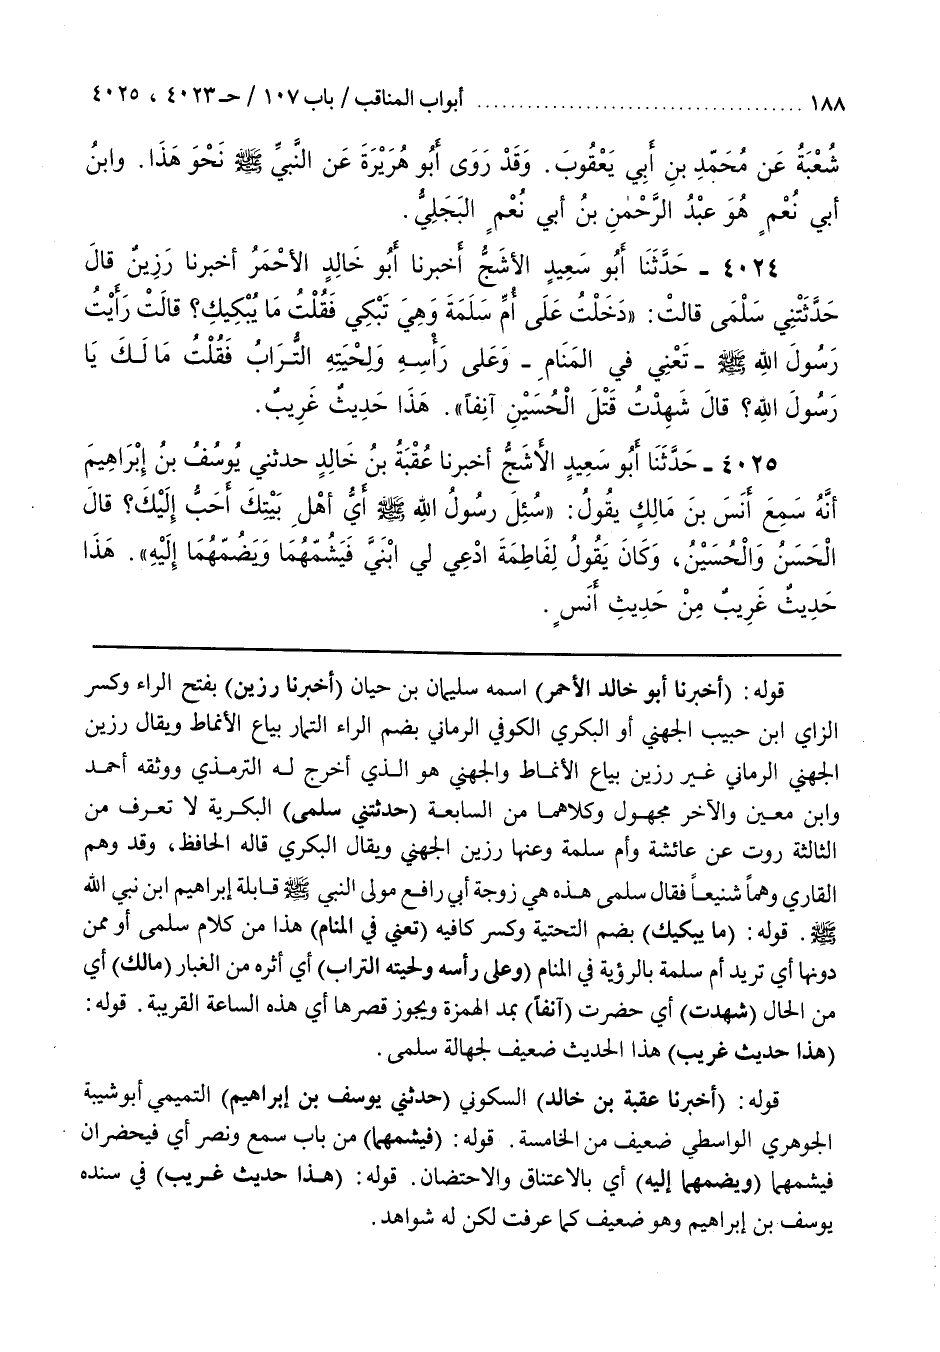 ١٨٨ ........................................ أبواب المناقب/ باب ١٠٧/ حـ ٤٠٢٣ ، ٤٠٢٥
شُعْبَةُ عَن مُحَمَّدِ بنِ أَبِي يَعْقُوبَ. وَقَدْ رَوَى أَبُو هُرَيْرَةَ عَن النَّبِيِّ ﷺ نَحْوَ هَذَا. وابنُ
أبي نُعْمٍ هُوَ عبْدُ الرَّحْمٰنِ بنُ أبي نُعْمٍ البَجَلِيُّ.
٤٠٢٤ ـ حَدَّثَنَا أَبُو سَعِيدٍ الأشَجُّ أخبرنا أَبُو خَالِدٍ الأحْمَرُ أخبرنا رَزِينٌ قالَ
حَدَّثَتْنِي سَلْمَى قالتْ: «دَخَلْتُ عَلَى أُمِّ سَلَمَةَ وَهِيَ تَبْكِي فَقُلْتُ مَا يُبْكِيكِ؟ قالَتْ رَأَيْتُ
رَسُولَ الله ﷺ ـ تَعْنِي في المَنَامِ ـ وَعَلى رَأْسِهِ وَلِحْيَتِهِ التُّرَابُ فَقُلْتُ مَا لَكَ يَا
رَسُولَ الله؟ قالَ شَهِدْتُ قَتْلَ الْحُسَيْنِ آنِفاً». هَذَا حَدِيثٌ غَرِيبٌ.
٤٠٢٥ ـ حَدَّثَنَا أَبُو سَعِيدٍ الأَشَجُّ أخبرنا عُقْبَةُ بنُ خَالِدٍ حدثني يُوسُفُ بنُ إِبْرَاهِيمَ
أنَّهُ سَمِعَ أَنَسَ بنَ مَالِكٍ يقُولُ: «سُئِلَ رسُولُ الله ﷺ أَيُّ أهْلِ بَيْتِكَ أَحَبُّ إِلَيْكَ؟ قالَ
الْحَسَنُ وَالْحُسَيْنُ، وَكَانَ يَقُولُ لِفَاطِمَةَ ادْعِي لي ابْنَيَّ فَيَشُمُّهُمَا وَيَضُمُّهُمَا إِلَيْهِ». هَذَا
حَدِيثٌ غَرِيبٌ مِنْ حَدِيثِ أَنَسٍ.
قوله: (أخبرنا أبو خالد الأحمر) اسمه سليمان بن حيان (أخبرنا رزين) بفتح الراء وكسر
الزاي ابن حبيب الجهني أو البكري الكوفي الرماني بضم الراء التمار بياع الأنماط ويقال رزين
الجهني الرماني غير رزين بياع الأنماط والجهني هو الذي أخرج له الترمذي ووثقه أحمد
وابن معين والآخر مجهول وكلاهما من السابعة (حدثتني سلمى) البكرية لا تعرف من
الثالثة روت عن عائشة وأم سلمة وعنها رزين الجهني ويقال البكري قاله الحافظ، وقد وهم
القاري وهماً شنيعاً فقال سلمى هذه هي زوجة أبي رافع مولى النبي ﷺ قابلة إبراهيم ابن نبي الله
ﷺ. قوله: (ما يبكيك) بضم التحتية وكسر كافيه (تعني في المنام) هذا من كلام سلمى أو ممن
دونها أي تريد أم سلمة بالرؤية في المنام (وعلى رأسه ولحيته التراب) أي أثره من الغبار (مالك) أي
من الحال (شهدت) أي حضرت (آنفاً) بمد الهمزة ويجوز قصرها أي هذه الساعة القريبة. قوله:
(هذا حديث غريب) هذا الحديث ضعيف لجهالة سلمى.
قوله: (أخبرنا عقبة بن خالد) السكوني (حدثني يوسف بن إبراهيم) التميمي أبو شيبة
الجوهري الواسطي ضعيف من الخامسة. قوله: (فيشمهما) من باب سمع ونصر أي فيحضران
فيشمهما (ويضمهما إليه) أي بالاعتناق والاحتضان. قوله: (هذا حديث غريب) في سنده
يوسف بن إبراهيم وهو ضعيف كما عرفت لكن له شواهد.